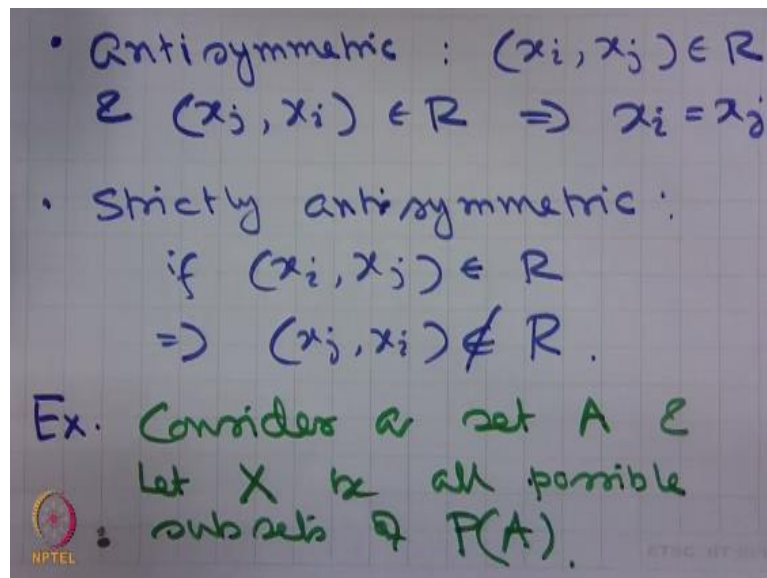 • Antisymmetric : (xi, xj) ∈ R
& (xj, xi) ∈ R ⇒ xi = xj
• Strictly antisymmetric :
if (xi, xj) ∈ R
⇒ (xj, xi) ∉ R.
Ex. Consider a set A &
Let X be all possible
: subsets of P(A).
NPTEL